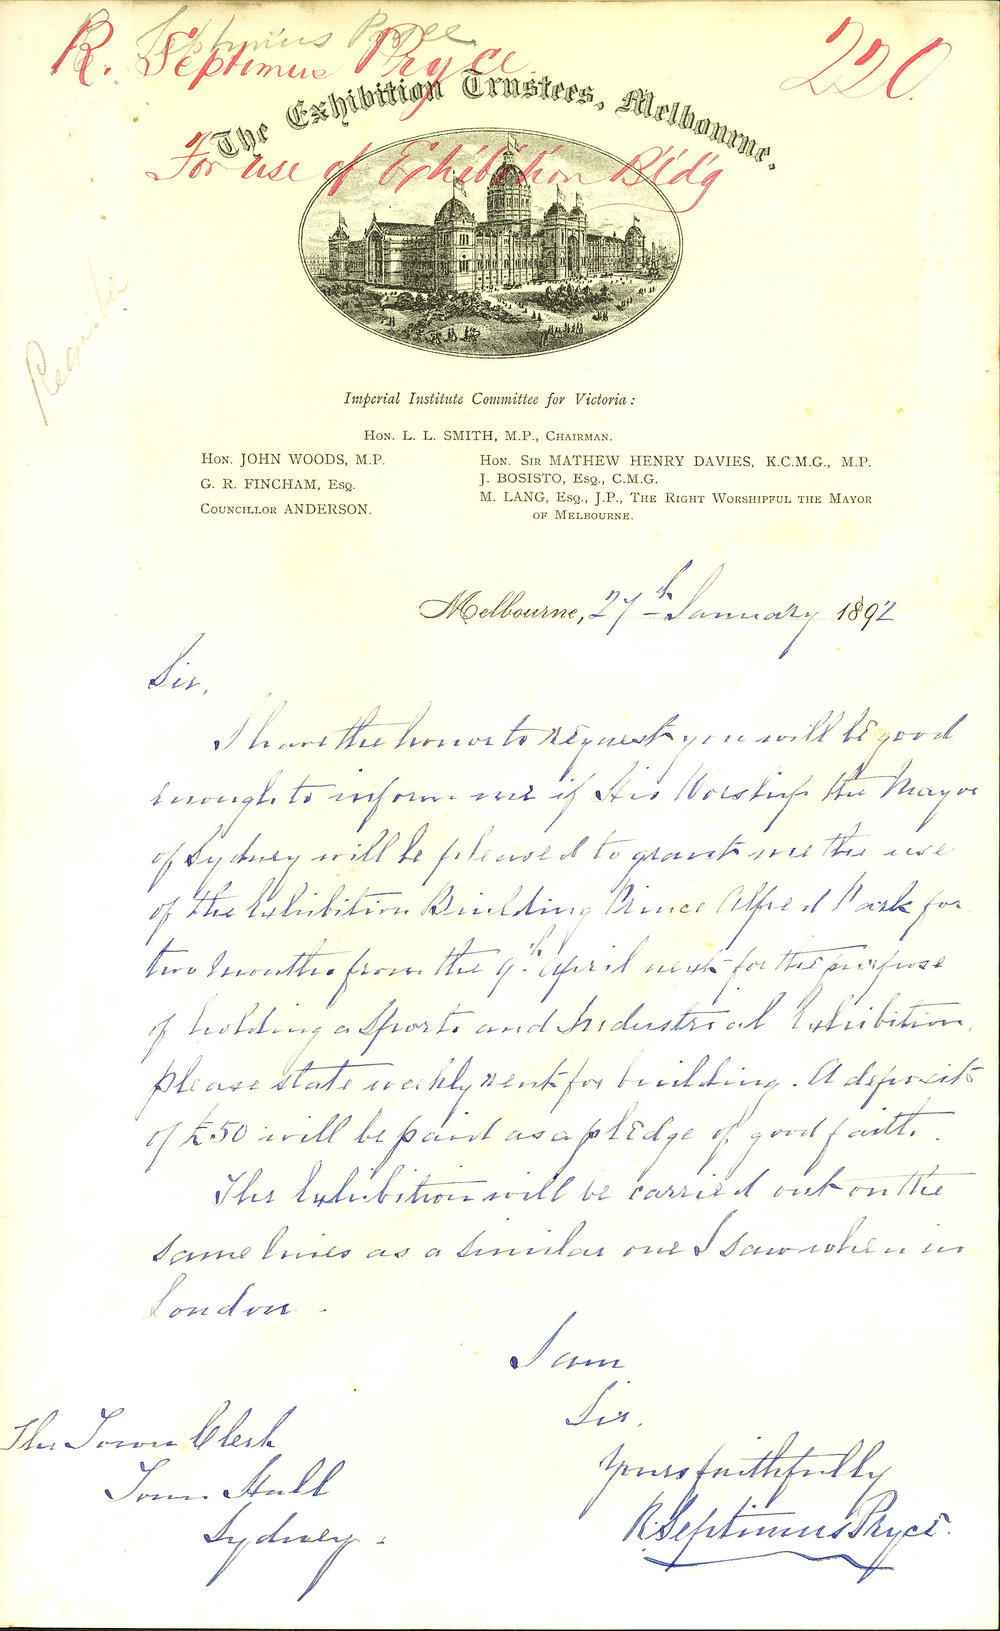 R. Septimus Pryce
R. Septimus Pryce
220
The Exhibition Trustees, Melbourne.
For use of Exhibition Bldg
Register
Imperial Institute Committee for Victoria:
HON. L. L. SMITH, M.P., CHAIRMAN.
HON. JOHN WOODS, M.P.
G. R. FINCHAM, ESQ.
COUNCILLOR ANDERSON.
HON. SIR MATHEW HENRY DAVIES, K.C.M.G., M.P.
J. BOSISTO, ESQ., C.M.G.
M. LANG, ESQ., J.P., THE RIGHT WORSHIPFUL THE MAYOR
OF MELBOURNE.
Melbourne, 27th January 1892
Sir,
I have the honor to request you will be good
enough to inform me if His Worship the Mayor
of Sydney will be pleased to grant me the use
of the Exhibition Building Prince Alfred Park for
two months from the 9th April next for the purpose
of holding a Sports and Industrial Exhibition,
please state weekly rent for building. A deposit
of £50 will be paid as a pledge of good faith.
The Exhibition will be carried out on the
same lines as a similar one I saw when in
London.
I am
Sir,
Yours faithfully
R. Septimus Pryce.
The Town Clerk
Town Hall
Sydney.